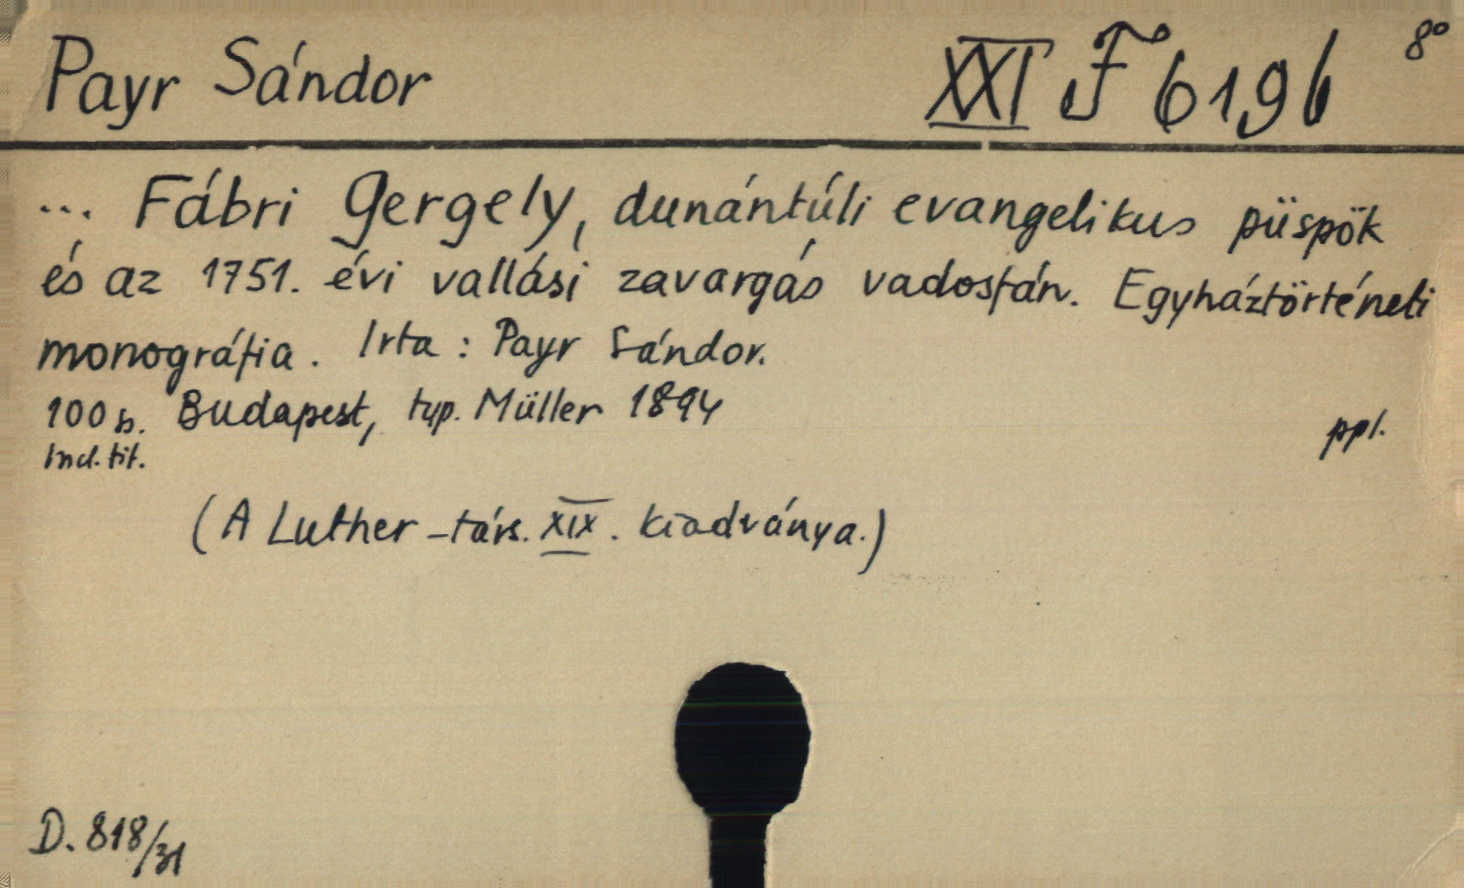 Payr Sándor
XXI F 6196 8°
... Fábri Gergely, dunántúli evangelikus püspök
és az 1751. évi vallási zavargás vadosfán. Egyháztörténeti
monográfia. Irta: Payr Sándor.
100 s. Budapest, typ. Müller 1894
ppl.
Incl. tit.
(A Luther-társ. XIX. kiadványa.)
D. 818/31